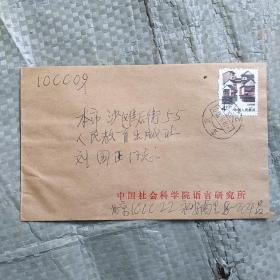 100009
本市沙滩后街55
人民教育出版社
刘国正同志
中国社会科学院语言研究所
北京100022
中国人民邮政